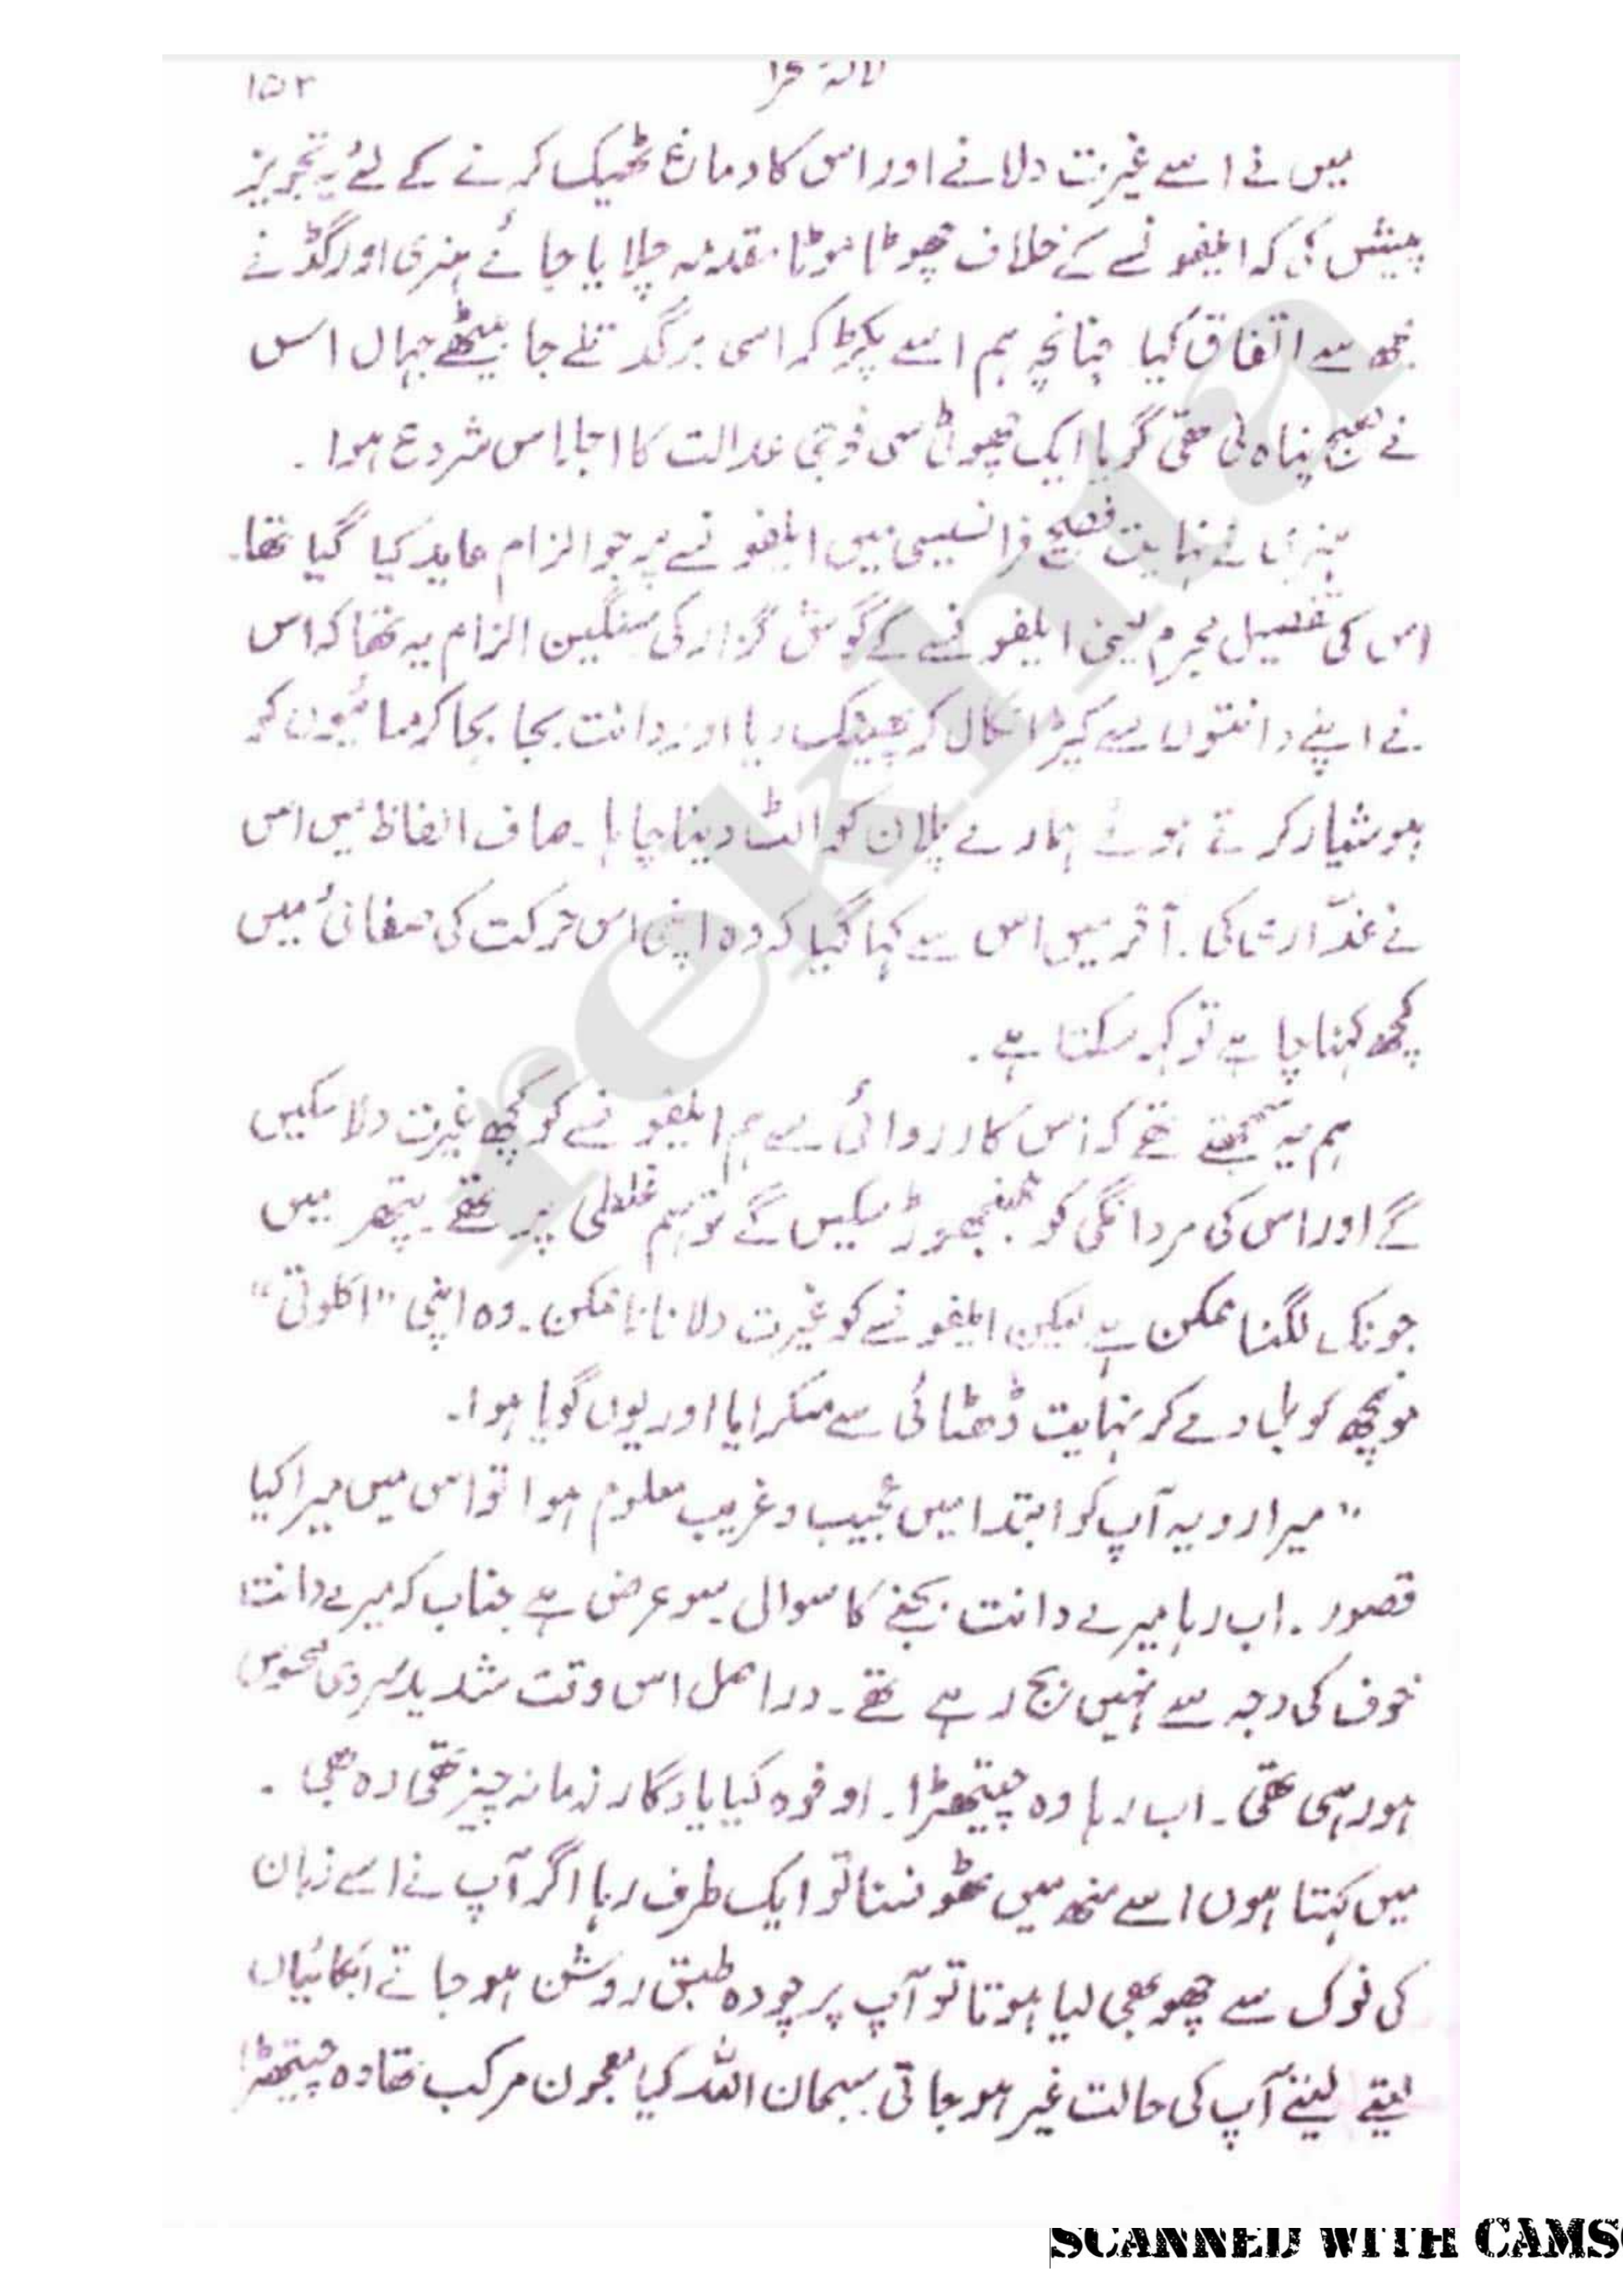 لالۂ صحرا ۱۵۲
میں نے اسے غیرت دلانے اور اس کا دماغ ٹھیک کرنے کے لئے یہ تجویز
پیش کی کہ ایلفونسے کے خلاف چھوٹا موٹا مقدمہ چلایا جائے ہنری اور گڈ نے
مجھ سے اتفاق کیا چنانچہ ہم اسے پکڑ کر اسی برگد تلے جا بیٹھے جہاں اس
نے صبح پناہ لی تھی گویا ایک چھوٹی سی فوجی عدالت کا اجلاس شروع ہوا .
ہنری نے نہایت فصیح فرانسیسی میں ایلفونسے پر جو الزام عاید کیا گیا تھا۔
اس کی تفصیل مجرم یعنی ایلفونسے کے گوش گزار کی سنگین الزام یہ تھا کہ اس
نے اپنے دانتوں سے کپڑا نکال کر پھینک دیا اور دانت بجا بجا کر مسائیوں کو
ہوشیار کرتے ہوئے ہمارے پلان کو الٹ دینا چاہا ۔ صاف الفاظ میں اس
نے غدّاری کی . آخر میں اس سے کہا گیا کہ وہ اپنی اس حرکت کی صفائی میں
کچھ کہنا چاہے تو کہہ سکتا ہے .
ہم یہ سمجھتے تھے کہ اس کارروائی سے ہم ایلفونسے کو کچھ غیرت دلا سکیں
گے اور اس کی مردانگی کو جھنجھوڑ سکیں گے تو ہم غلطی پر تھے ۔ پتھر میں
جونک لگنا ممکن ہے لیکن ایلفونسے کو غیرت دلانا ناممکن ۔ وہ اپنی "اکلوتی"
مونچھ کو بل دے کر نہایت ڈھٹائی سے مسکرایا اور یوں گویا ہوا۔
"میرا رویہ آپ کو ابتدا میں عجیب و غریب معلوم ہوا تو اس میں میرا کیا
قصور . اب رہا میرے دانت بجنے کا سوال سو عرض ہے جناب کہ میرے دانت
خوف کی وجہ سے نہیں بج رہے تھے ۔ دراصل اس وقت شدید سردی محسوس
ہو رہی تھی ۔ اب رہا وہ چیتھڑا ۔ اوفوہ کیا یادگار زمانہ چیز تھی وہ بھی .
میں کہتا ہوں اسے منھ میں ٹھونسنا تو ایک طرف رہا اگر آپ نے اسے زبان
کی نوک سے چھو بھی لیا ہوتا تو آپ پر چودہ طبق روشن ہو جاتے ابکائیاں
لیتے لیتے آپ کی حالت غیر ہو جاتی سبحان اللہ کیا معجون مرکب تھا وہ چیتھڑا
rekhta
SCANNED WITH CAMS